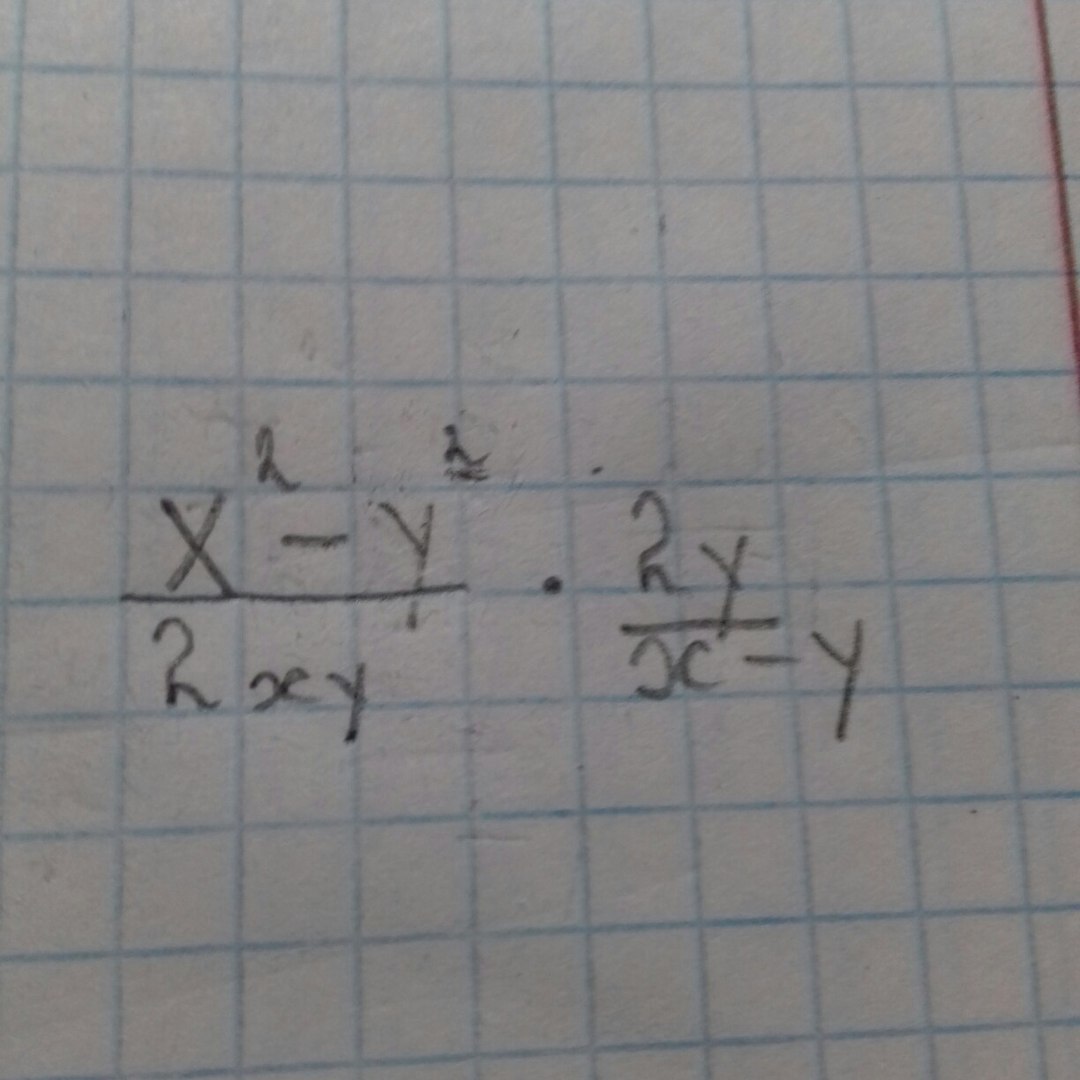 \frac{x^2 - y^2}{2xy} \cdot \frac{2y}{x - y}